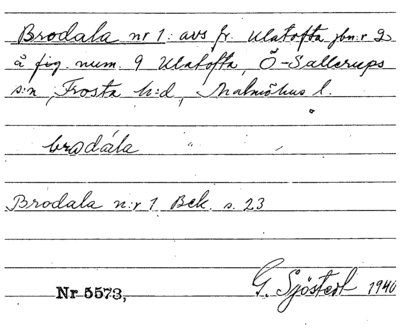 Brodala nr 1: avs fr. Ulatofta jbn:r 2
å fig. num. 9 Ulatofta, Ö-Sallerups
s:n, Frosta h:d, Malmöhus l.
brodåla " ,
Brodala n:r 1 Bek. s. 23
Nr 5573, G. Sjöstedt 1940